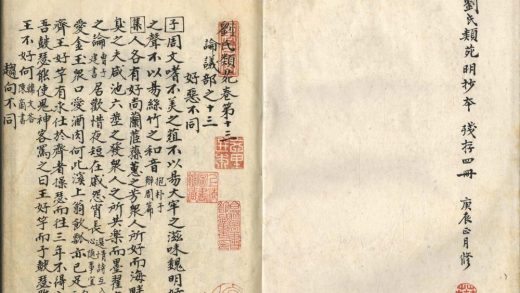 劉氏類苑明抄本 殘存四冊
庚辰正月修
劉氏類苑卷第十三
論議部之十三
好惡不同
子 周文嗜不美之菹不以易大牢之滋味魏明好
之聲不以易絲竹之和音 抱朴子辯問篇
集 人各有好尚蘭茝蓀蕙之芳衆人所好而海畔
臭之夫咸池六莖之發衆人之所共樂而墨翟
之論 曹子建書 居歡惜夜短在戚怨宵長
愛金玉衆口愛酒肉何此溪上翁飲瓢亦已足
齊王好竽有求仕於齊者操瑟而往三年不得
吾鼓瑟能使鬼神客罵之曰王好竽而子鼓瑟
王不好何 韓文答陳商書
趨向不同